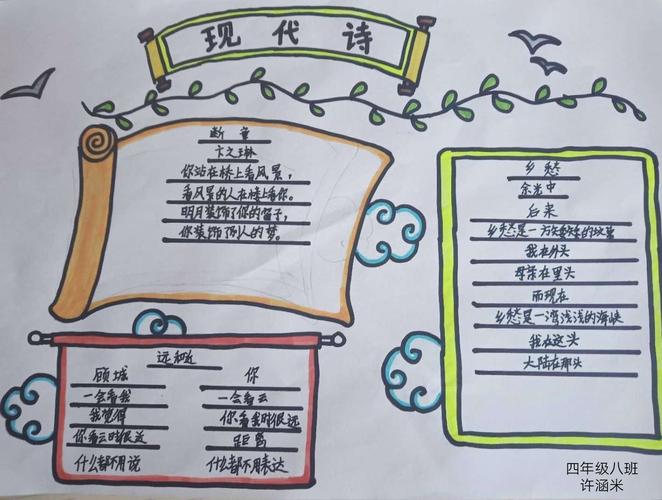 现代诗
断章
卞之琳
你站在桥上看风景，
看风景的人在桥上看你。
明月装饰了你的窗子，
你装饰了别人的梦。
乡愁
余光中
后来
乡愁是一方矮矮的坟墓
我在外头
母亲在里头
而现在
乡愁是一湾浅浅的海峡
我在这头
大陆在那头
远和近
顾城
一会看我
我觉得
你看云时很近
什么都不用说
你
一会看云
你看我时很远
距离
什么都不用表达
四年级八班
许涵米